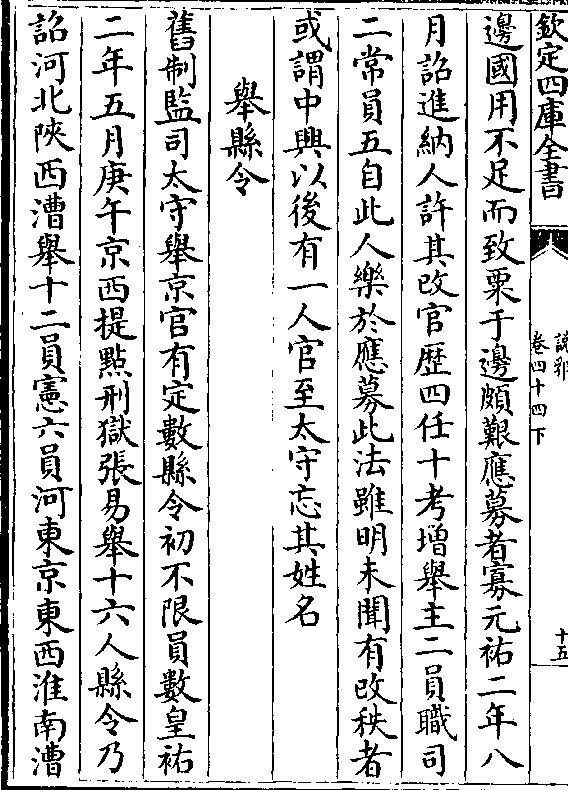 欽定四庫全書
說郛
卷四十四下
十五
邊國用不足而致粟于邊頗艱應募者寡元祐二年八
月詔進納人許其改官歴四任十考增舉主二員職司
二常員五自此人樂於應募此法雖明未聞有改秩者
或謂中興以後有一人官至太守忘其姓名
舉縣令
舊制監司太守舉京官有定數縣令初不限員數皇祐
二年五月庚午京西提點刑獄張易舉十六人縣令乃
詔河北陜西漕舉十二員憲六員河東京東西淮南漕